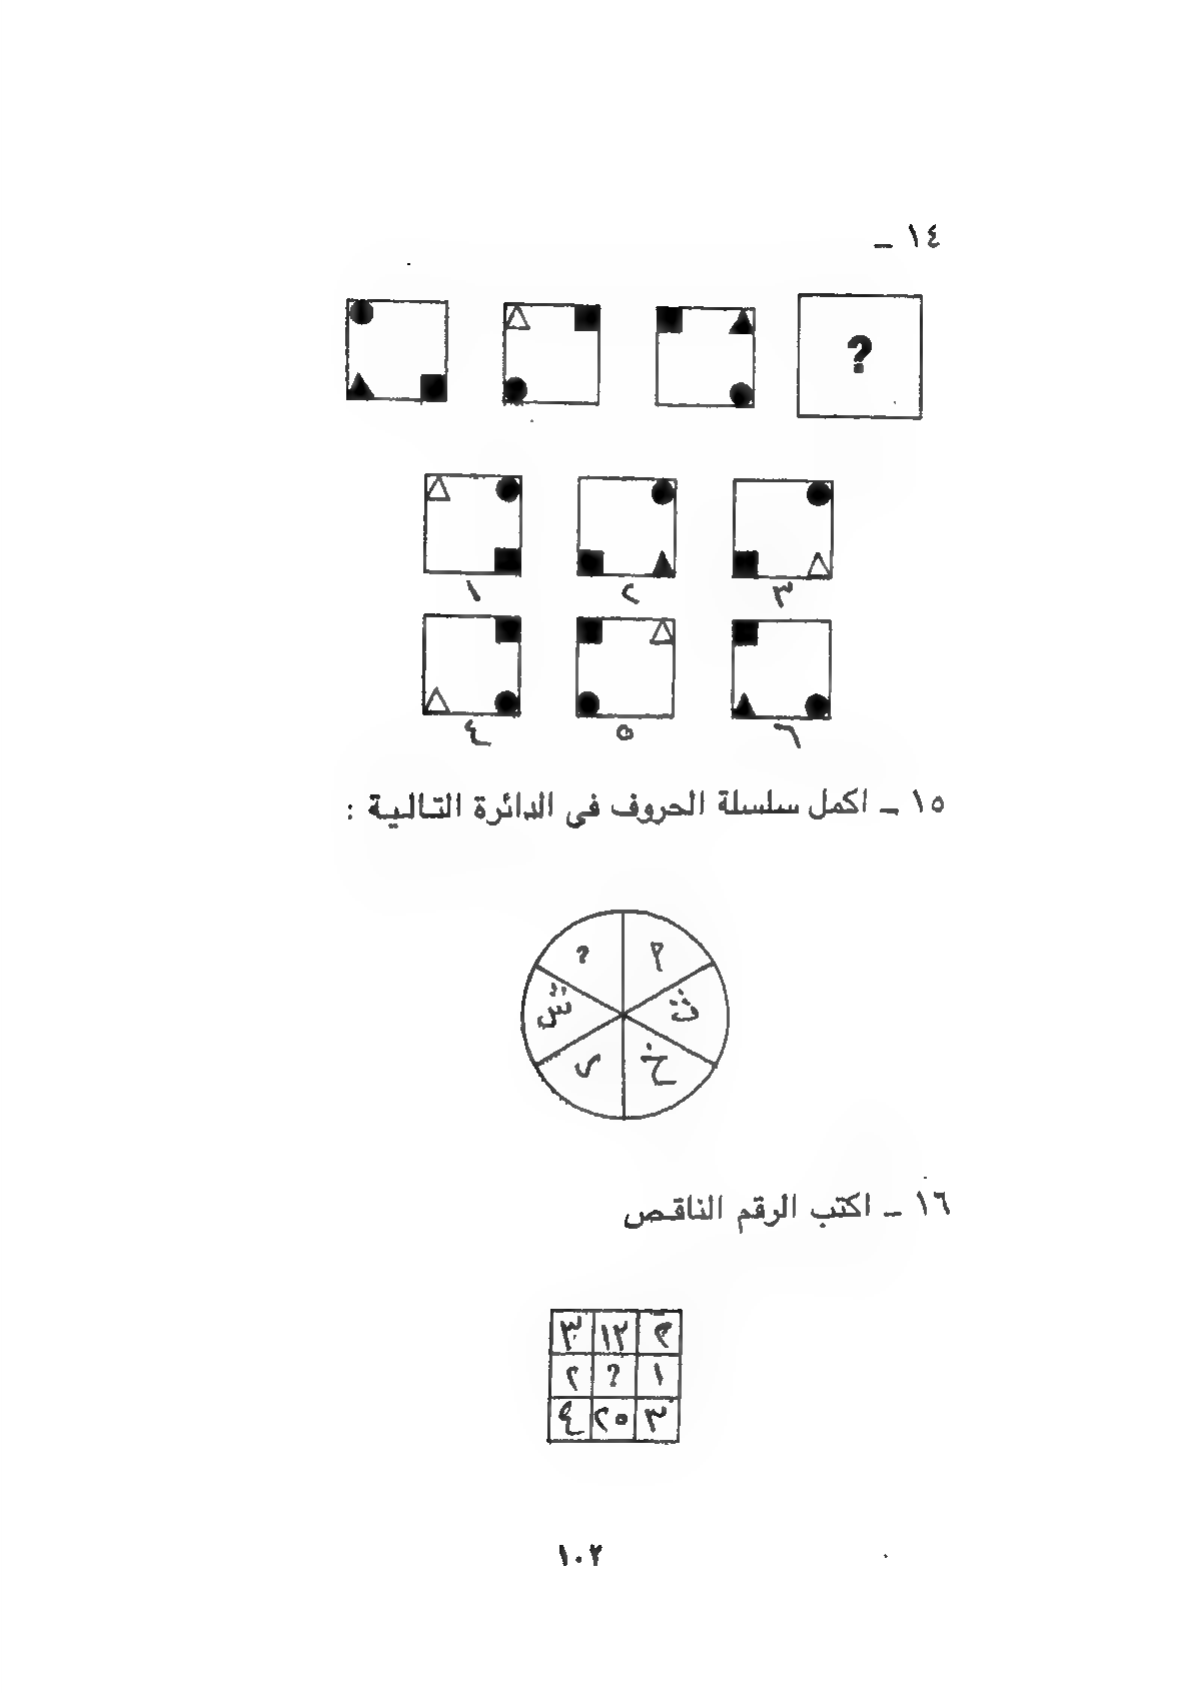 ١٤ –
?
١ ٢ ٣
٤ ٥ ٦
١٥ – اكمل سلسلة الحروف فى الدائرة التالية :
؟ أ
ش ث
ر خ
١٦ – اكتب الرقم الناقص
٣ ١٢ ٢
٢ ? ١
٤ ٢٥ ٣
١٠٢